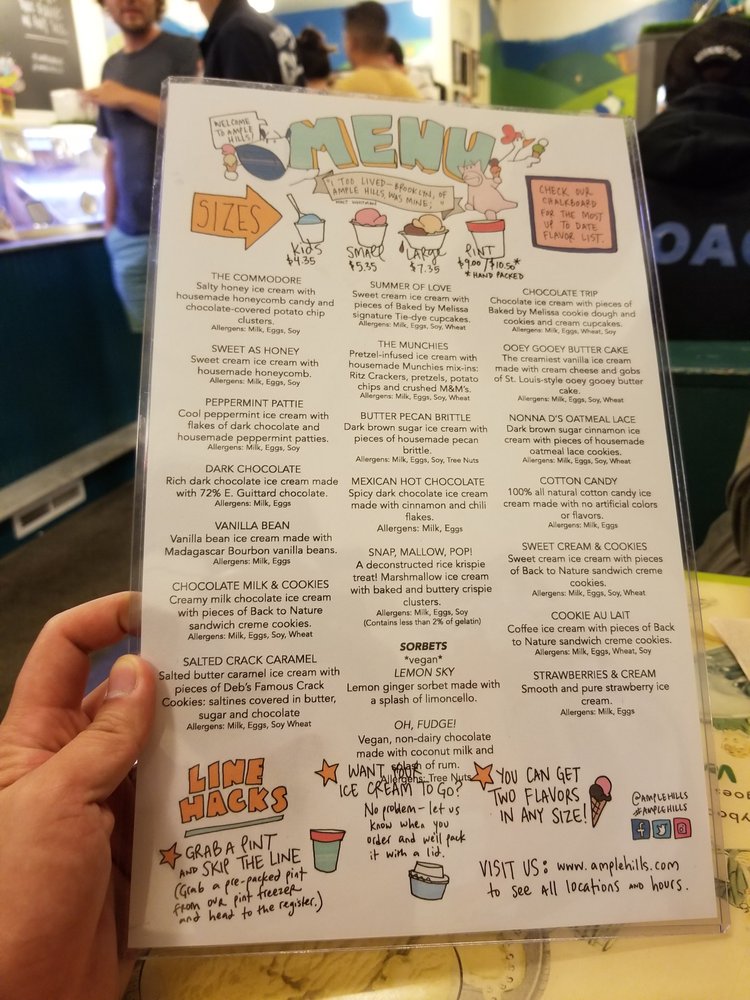 WELCOME
TO AMPLE
HILLS!
MENU
"I TOO LIVED-BROOKLYN, OF
AMPLE HILLS, WAS MINE;"
WALT WHITMAN
SIZES
CHECK OUR
CHALKBOARD
FOR THE MOST
UP TO DATE
FLAVOR LIST.
KIDS
$4.35
SMALL
$5.35
LARGE
$7.35
PINT
$9.00/$10.50*
*HAND PACKED
THE COMMODORE
Salty honey ice cream with
housemade honeycomb candy and
chocolate-covered potato chip
clusters.
Allergens: Milk, Eggs, Soy
SWEET AS HONEY
Sweet cream ice cream with
housemade honeycomb.
Allergens: Milk, Eggs, Soy
PEPPERMINT PATTIE
Cool peppermint ice cream with
flakes of dark chocolate and
housemade peppermint patties.
Allergens: Milk, Eggs, Soy
DARK CHOCOLATE
Rich dark chocolate ice cream made
with 72% E. Guittard chocolate.
Allergens: Milk, Eggs
VANILLA BEAN
Vanilla bean ice cream made with
Madagascar Bourbon vanilla beans.
Allergens: Milk, Eggs
CHOCOLATE MILK & COOKIES
Creamy milk chocolate ice cream
with pieces of Back to Nature
sandwich creme cookies.
Allergens: Milk, Eggs, Soy, Wheat
SALTED CRACK CARAMEL
Salted butter caramel ice cream with
pieces of Deb's Famous Crack
Cookies: saltines covered in butter,
sugar and chocolate
Allergens: Milk, Eggs, Soy Wheat
SUMMER OF LOVE
Sweet cream ice cream with
pieces of Baked by Melissa
signature Tie-dye cupcakes.
Allergens: Milk, Eggs, Soy, Wheat
THE MUNCHIES
Pretzel-infused ice cream with
housemade Munchies mix-ins:
Ritz Crackers, pretzels, potato
chips and crushed M&M's.
Allergens: Milk, Eggs, Soy, Wheat
BUTTER PECAN BRITTLE
Dark brown sugar ice cream with
pieces of housemade pecan
brittle.
Allergens: Milk, Eggs, Soy, Tree Nuts
MEXICAN HOT CHOCOLATE
Spicy dark chocolate ice cream
made with cinnamon and chili
flakes.
Allergens: Milk, Eggs
SNAP, MALLOW, POP!
A deconstructed rice krispie
treat! Marshmallow ice cream
with baked and buttery crispie
clusters.
Allergens: Milk, Eggs, Soy
(Contains less than 2% of gelatin)
SORBETS
*vegan*
LEMON SKY
Lemon ginger sorbet made with
a splash of limoncello.
OH, FUDGE!
Vegan, non-dairy chocolate
made with coconut milk and
splash of rum.
Allergens: Tree Nuts
CHOCOLATE TRIP
Chocolate ice cream with pieces of
Baked by Melissa cookie dough and
cookies and cream cupcakes.
Allergens: Milk, Eggs, Wheat, Soy
OOEY GOOEY BUTTER CAKE
The creamiest vanilla ice cream
made with cream cheese and gobs
of St. Louis-style ooey gooey butter
cake.
Allergens: Milk, Eggs, Soy, Wheat
NONNA D'S OATMEAL LACE
Dark brown sugar cinnamon ice
cream with pieces of housemade
oatmeal lace cookies.
Allergens: Milk, Eggs, Soy, Wheat
COTTON CANDY
100% all natural cotton candy ice
cream made with no artificial colors
or flavors.
Allergens: Milk, Eggs
SWEET CREAM & COOKIES
Sweet cream ice cream with pieces
of Back to Nature sandwich creme
cookies.
Allergens: Milk, Eggs, Soy, Wheat
COOKIE AU LAIT
Coffee ice cream with pieces of Back
to Nature sandwich creme cookies.
Allergens: Milk, Eggs, Wheat, Soy
STRAWBERRIES & CREAM
Smooth and pure strawberry ice
cream.
Allergens: Milk, Eggs
LINE
HACKS
GRAB A PINT
AND SKIP THE LINE
(Grab a pre-packed pint
from our pint freezer
and head to the register.)
WANT YOUR
ICE CREAM TO GO?
No problem-let us
know when you
order and we'll pack
it with a lid.
YOU CAN GET
TWO FLAVORS
IN ANY SIZE!
@AMPLEHILLS
#AMPLEHILLS
VISIT US: www.amplehills.com
to see all locations and hours.
OAC